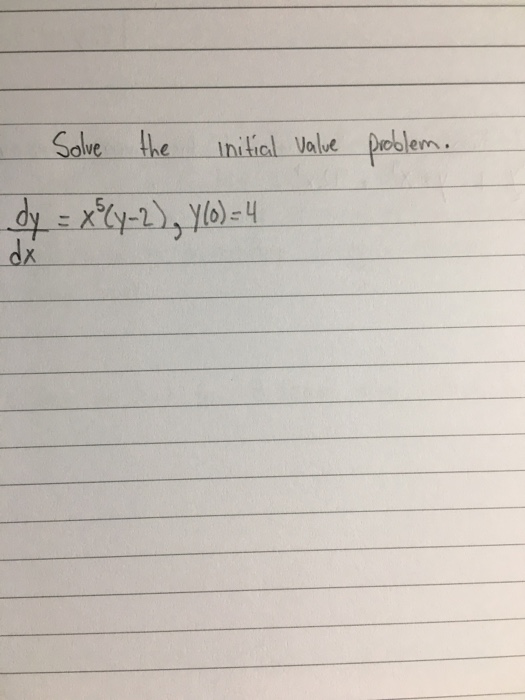 Solve the initial value problem.
dy/dx = x⁵(y-2), y(0)=4